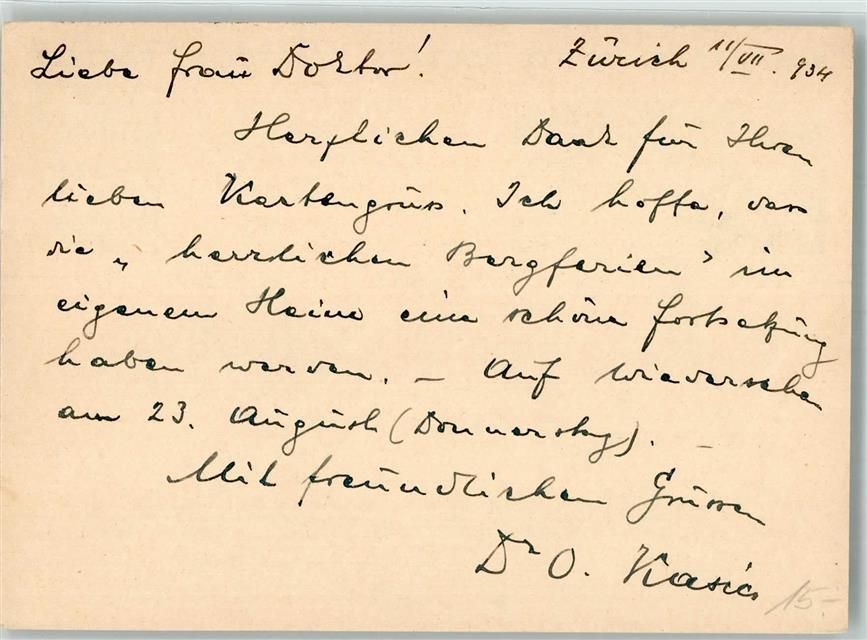 Liebe Frau Doktor! Zürich 11/VII. 934
Herzlichen Dank für Ihren
lieben Kartengruss. Ich hoffe, dass
die „herrlichen Bergferien" im
eigenem Heime eine schöne Fortsetzung
haben werden. — Auf Wiedersehen
am 23. August (Donnerstag). —
Mit freundlichen Grüssen
Dr O.
15.-